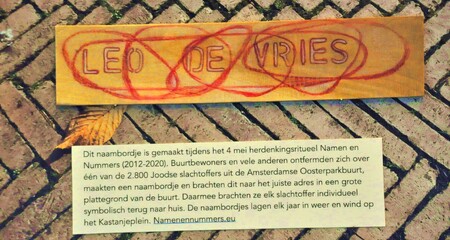 LEO DE VRIES
Dit naambordje is gemaakt tijdens het 4 mei herdenkingsritueel Namen en
Nummers (2012-2020). Buurtbewoners en vele anderen ontfermden zich over
één van de 2.800 Joodse slachtoffers uit de Amsterdamse Oosterparkbuurt,
maakten een naambordje en brachten dit naar het juiste adres in een grote
plattegrond van de buurt. Daarmee brachten ze elk slachtoffer individueel
symbolisch terug naar huis. De naambordjes lagen elk jaar in weer en wind op
het Kastanjeplein. Namenennummers.eu